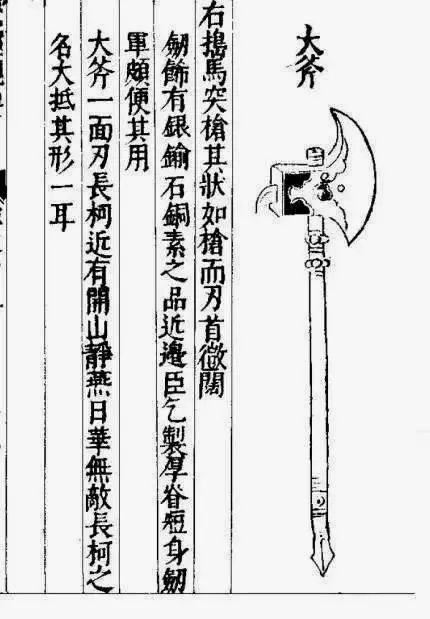 大斧
右搗馬突槍其狀如槍而刃首微闊
劒飾有銀鍮石銅素之品近邊臣乞製厚脊短身劒
軍頗便其用
大斧一面刃長柯近有開山靜燕日華無敵長柯之
名大抵其形一耳